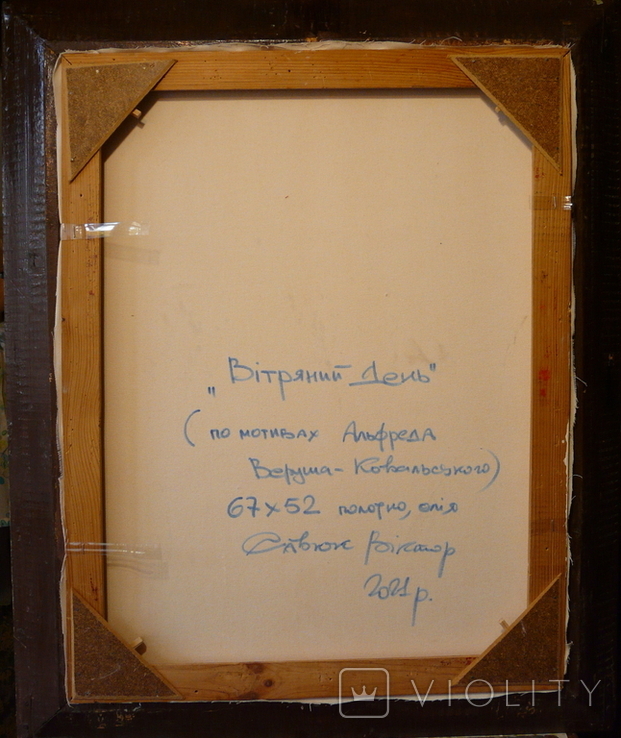 „Вітряний День"
(по мотивах Альфреда
Веруша-Ковальського)
67х52 полотно, олія
Віктор
2021р.
VIOLITY